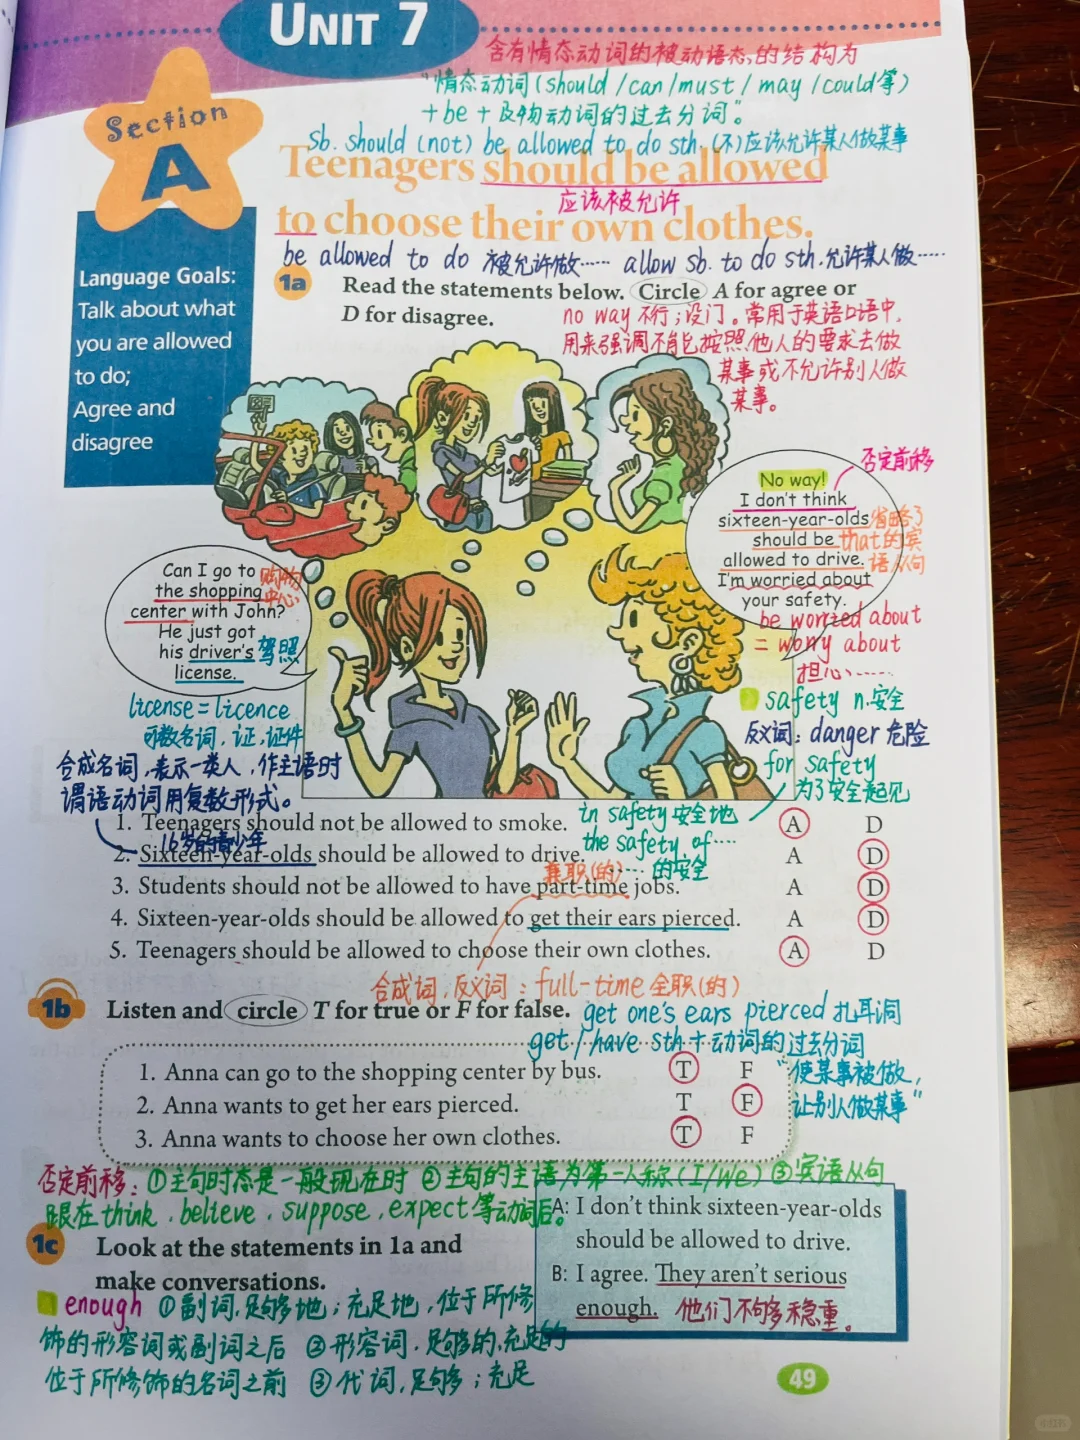 UNIT 7
含有情态动词的被动语态的结构为
"情态动词(should/can/must/may/could等)
+be+及物动词的过去分词"。
Section
A
sb. should (not) be allowed to do sth. (不)应该允许某人做某事
Teenagers should be allowed
应该被允许
to choose their own clothes.
be allowed to do 被允许做…… allow sb. to do sth. 允许某人做……
Language Goals:
Talk about what
you are allowed
to do;
Agree and
disagree
1a Read the statements below. Circle A for agree or
D for disagree.
no way 不行;没门。常用于英语口语中,
用来强调不能按照他人的要求去做
某事或不允许别人做
某事。
否定前移
No way!
I don't think
sixteen-year-olds
should be
allowed to drive.
I'm worried about
your safety.
省略了
that的宾
语从句
Can I go to
the shopping
center with John?
He just got
his driver's
license.
购物
中心
驾照
be worried about
= worry about
担心……
license = licence
可数名词,证,证件
safety n.安全
反义词: danger 危险
for safety
为了安全起见
合成名词,表示一类人,作主语时
谓语动词用复数形式。
in safety 安全地
the safety of……
……的安全
1. Teenagers should not be allowed to smoke. A D
16岁的青少年
2. Sixteen-year-olds should be allowed to drive. A D
兼职(的)
3. Students should not be allowed to have part-time jobs. A D
4. Sixteen-year-olds should be allowed to get their ears pierced. A D
5. Teenagers should be allowed to choose their own clothes. A D
合成词,反义词: full-time 全职(的)
1b Listen and circle T for true or F for false.
get one's ears pierced 扎耳洞
get/have sth + 动词的过去分词
"使某事被做,
让别人做某事"
1. Anna can go to the shopping center by bus. T F
2. Anna wants to get her ears pierced. T F
3. Anna wants to choose her own clothes. T F
否定前移: ①主句时态是一般现在时 ②主句的主语为第一人称(I/We) ③宾语从句
跟在think、believe、suppose、expect等动词后。
1c Look at the statements in 1a and
make conversations.
A: I don't think sixteen-year-olds
should be allowed to drive.
B: I agree. They aren't serious
enough. 他们不够稳重。
enough ①副词,足够地;充足地,位于所修
饰的形容词或副词之后 ②形容词,足够的,充足的
位于所修饰的名词之前 ③代词,足够;充足
49